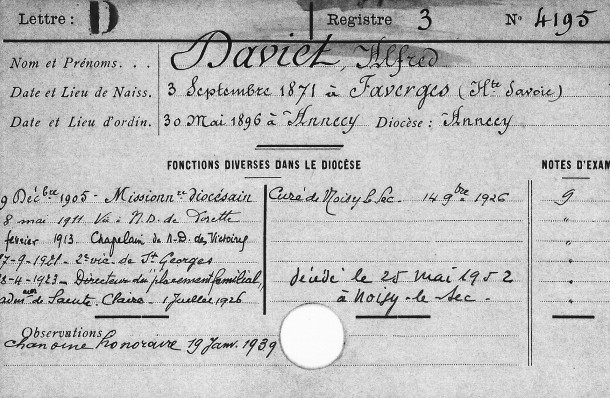 Lettre : D Registre 3 N° 4195
Nom et Prénoms. . . Daviet, Alfred
Date et Lieu de Naiss. 3 Septembre 1871 à Faverges (Hte Savoie)
Date et Lieu d'ordin. 30 Mai 1896 à Annecy Diocèse : Annecy
FONCTIONS DIVERSES DANS LE DIOCÈSE
NOTES D'EXAM
9 Décbre 1905 - Missionnre diocésain
8 mai 1911 Vic à N.D. de Lorette
février 1913 Chapelain de N-D. des Victoires
7-9-1921 - 2e vic. de St Georges
8-4-1923 - Directeur du "placement familial"
adm. de Sainte Claire - 1 Juillet 1926
Curé de Noisy le Sec - 14 9bre 1926
décédé le 25 mai 1952
à Noisy-le-Sec -
9
"
"
"
"
"
Observations
chanoine honoraire 19 Janv. 1939